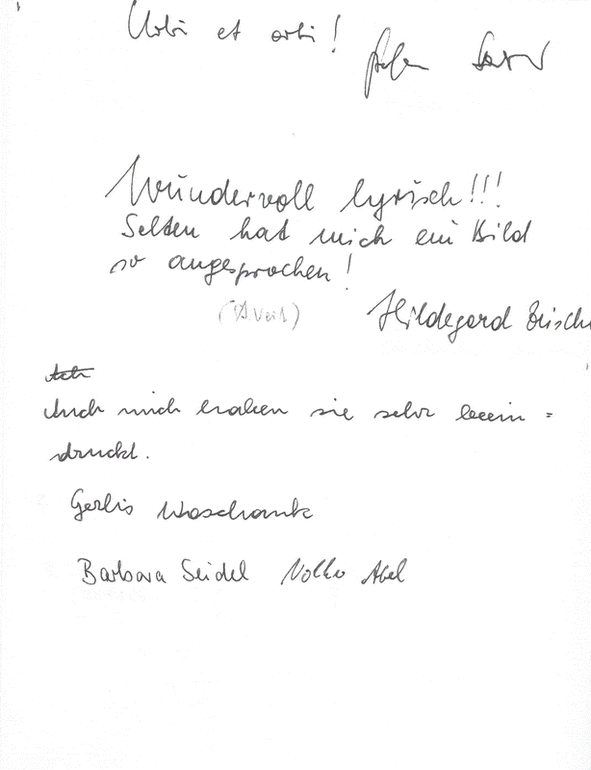 Urbi et orbi!
Wundervoll lyrisch!!!
Selten hat mich ein Bild
so angesprochen!
(A. Veit)
Hildegard
Auch mich haben sie sehr beein=
druckt.
Gerlis Woschank
Barbara Seidel Volker Abel